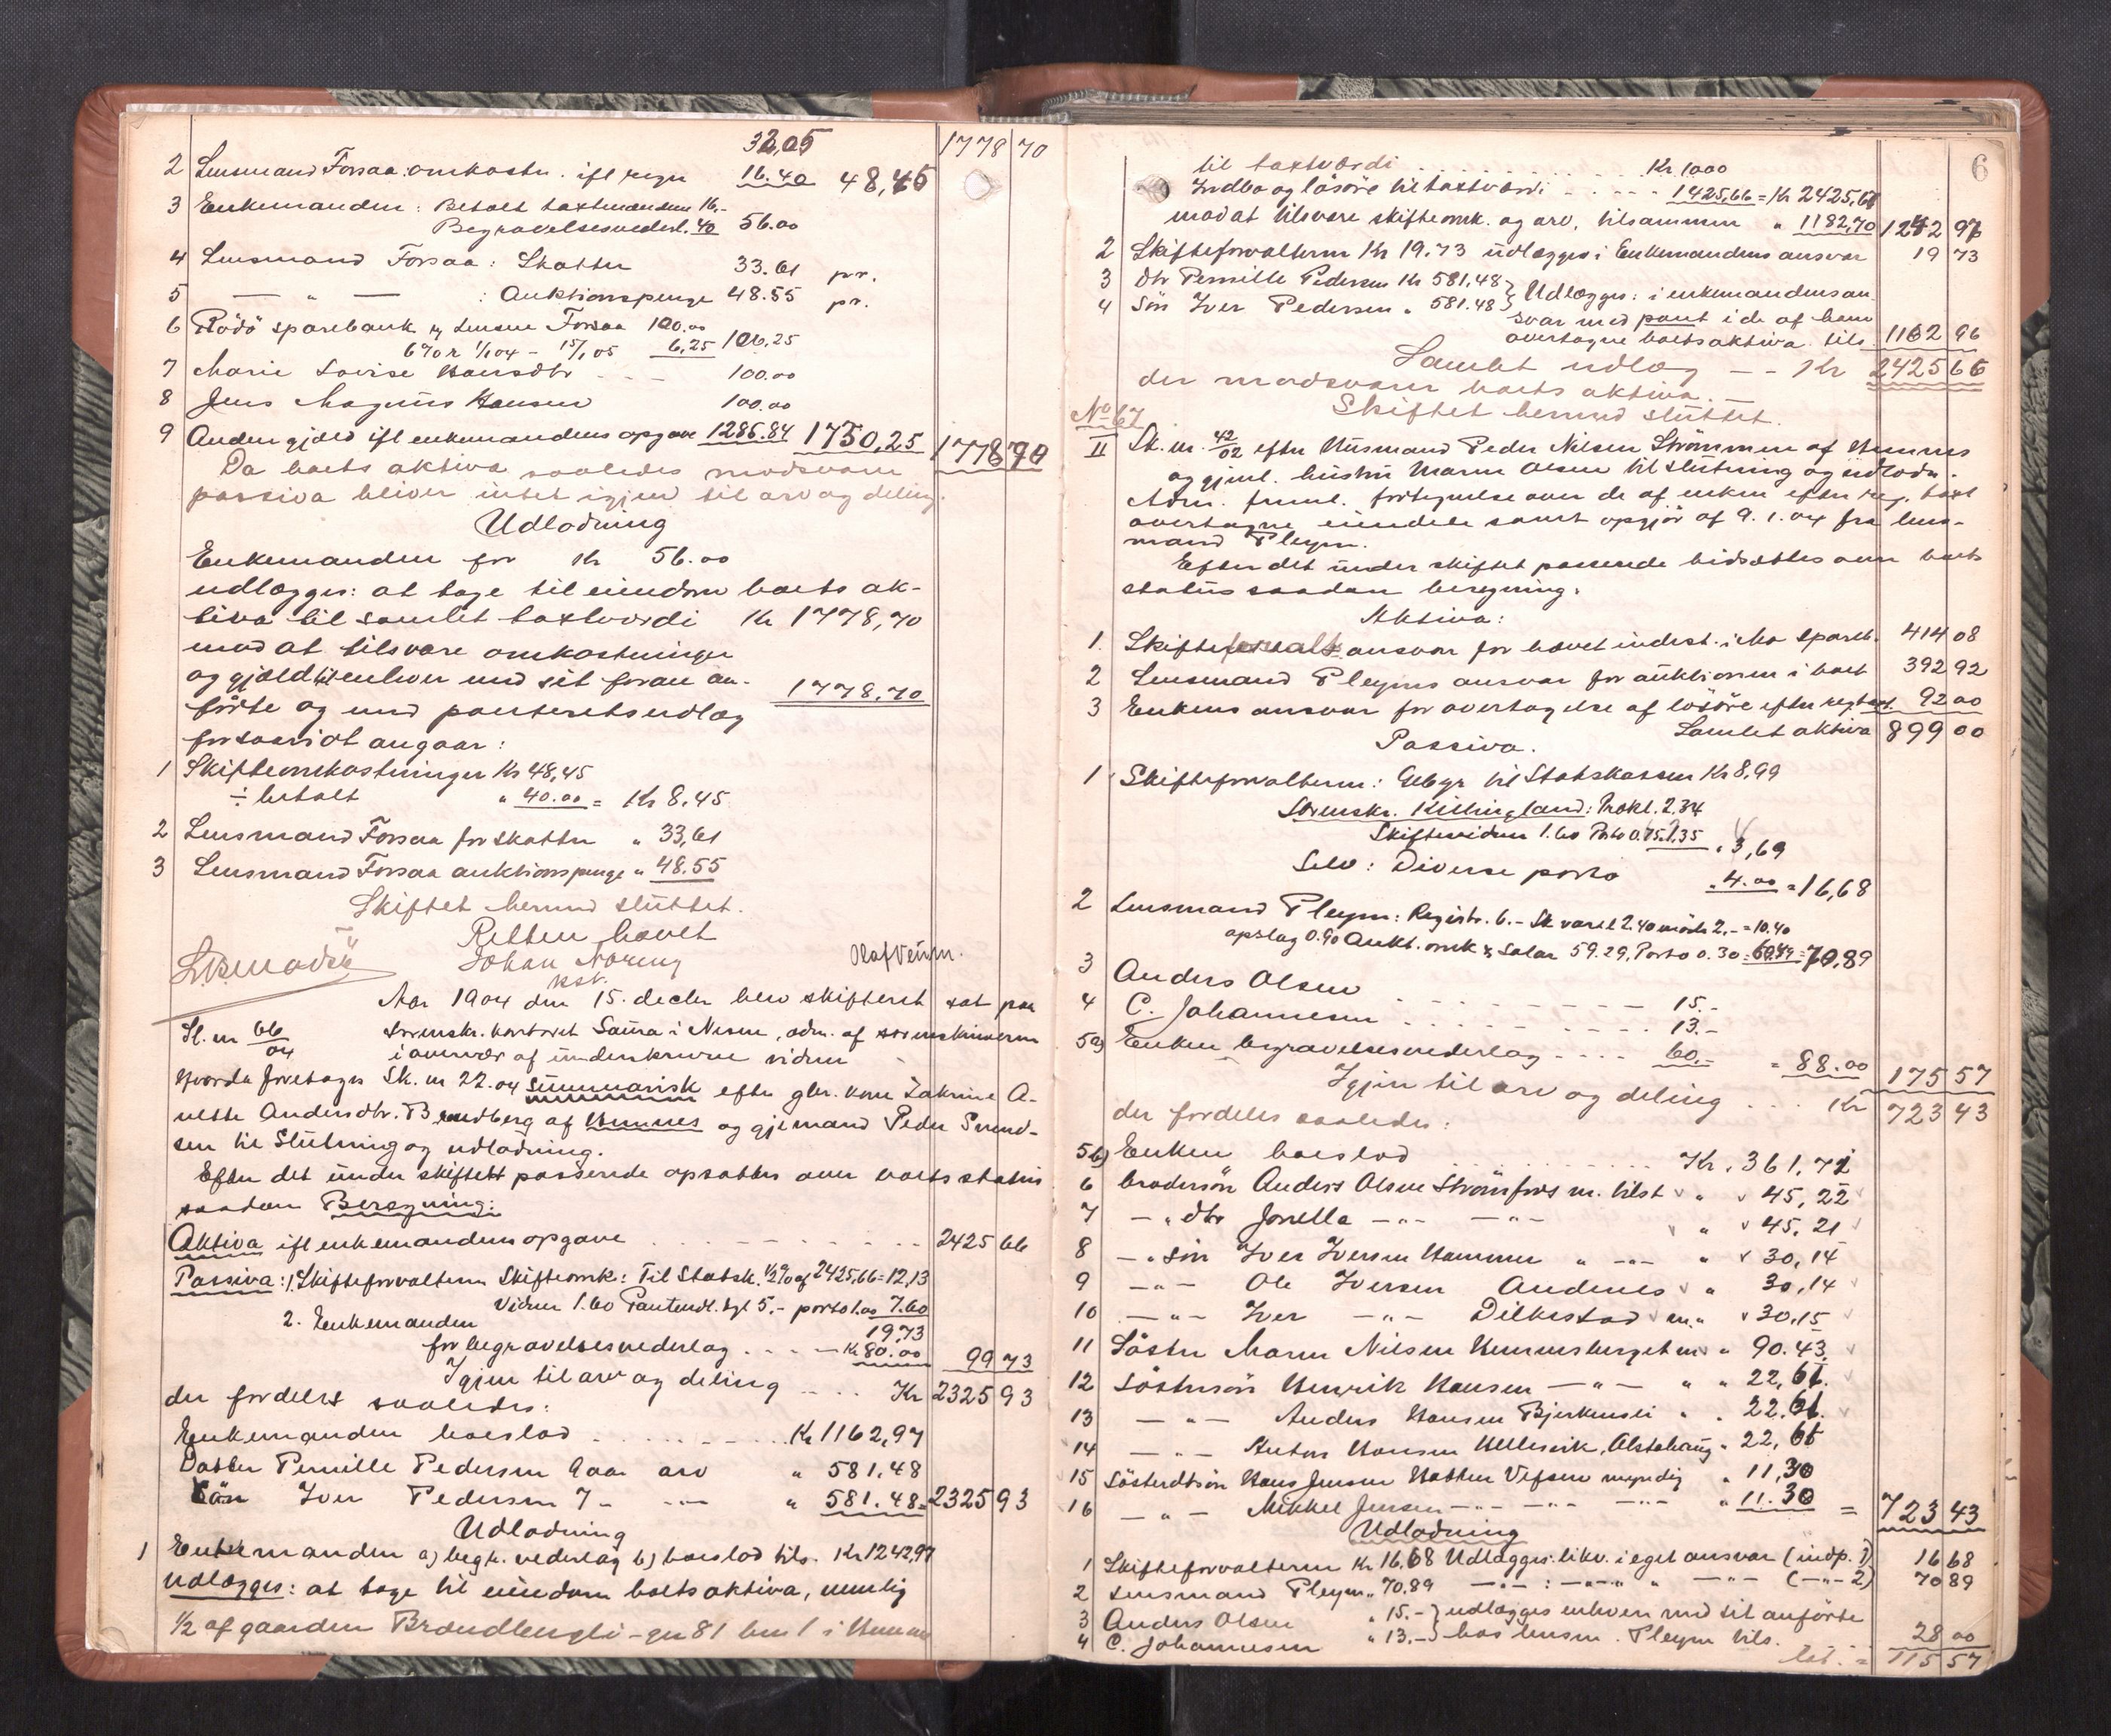 32,05 1778 70
2 Lensmand Forsaa: omkostn. ifl regn 16.40 48,45
3 Enkemanden: Betalt taxtmændene 16,-
Begravelsesvederl. 40 56.00
4 Lensmand Forsaa: Skatter 33.61 pr.
5 — " — : Auktionspenge 48.55 pr.
6 Rödö sparebank v/ Lensm Forsaa 100.00
6% r 1/1 04 - 15/1 05 6,25 106,25
7 Marie Lovise Hansdtr - - - 100.00
8 Jens Magnus Hansen 100.00
9 Anden gjæld ifl enkemandens opgave 1286.84 1730,25 1778 70
Da boets aktiva saaledes modsvarer
passiva bliver intet igjen til arv og deling.
Udlodning
Enkemanden for Kr 56.00
udlægges: at tage til eiendom boets ak-
tiva til samlet taxtværdi Kr 1778,70
mod at tilsvare omkostninger
og gjæld til enhver med sit foran an-
förte og med panteretsudlæg 1778,70
forsaavidt angaar:
1 Skifteomkostninger Kr 48,45
÷ betalt " 40.00 = Kr 8.45
2 Lensmand Forsaa for skatter " 33,61
3 Lensmand Forsaa auktionspenge " 48.55
Skiftet hermed sluttet.
Retten hævet
Johan Noreng Olaf Veum.
kst.
Aar 1904 den 15. decbr blev skifteret sat paa
Sl. nr 66/04 sorenskr. kontoret Saura i Nesna, adm. af sorenskriveren
i overvær af underskrevne vidner
Hvorda foretages Sk. nr 22.04 summarisk efter gbr. kone Zakrine A-
nette Andersdtr. Brændberg af Hemnes og gjemand Peder Svend-
sen til Slutning og udlodning.
Efter det under skiftet passerede opsattes over boets status
saadan Beregning:
Aktiva ifl enkemandens opgave 2425 66
Passiva: 1 Skifteforvalteren Skifteomk: Til Statsk. 1/2% af 2425,66 = 12,13
Vidner 1.60 Panteudl. tgl 5,- porto 1.00 7.60
2. Enkemanden 19,73
for begravelsesvederlag - - - - Kr 80.00 99 73
Igjen til arv og deling - - . . Kr 2325 93
der fordeles saaledes:
Enkemanden boeslod Kr 1162,97
Datter Pernille Pedersen 9 aar arv " 581.48
Sön Iver Pedersen 7 - -"- " 581.48 = 2325 93
Udlodning
1 Enkemanden a) begr. vederlag b) boeslod tils. Kr 1242,97
Udlægges: at tage til eiendom boets aktiva, nemlig
1/2 af gaarden Brændbergli - gn 81 bn 1 i Hemnes
6
til taxtværdi Kr 1000
Indbo og lösöre til taxtværdi - - - - 1425,66 = Kr 2425,66
mod at tilsvare skifteomk. og arv, tilsammen " 1182,70 1242 97
2 Skifteforvalteren Kr 19.73 udlægges i Enkemandens ansvar 19 73
3 Dtr Pernille Pedersen Kr 581,48 } Udlægges: i enkemandens an-
4 Sön Iver Pedersen " 581.48 } svar med pant i de af ham
overtagne boets aktiva tils. 1162 96
Samlet udlæg - - Kr 2425 66
der modsvarer boets aktiva. —
Skiftet hermed sluttet.
No 67
II Sk. nr. 42/02 efter Husmand Peder Nilsen Strömmen af Hemnes
og gjenl. hustru Maren Olsen til slutning og udlodn.
Adm. freml. fortegnelse over de af enken efter reg. taxt
overtagne eiendele samt opgjör af 9. 1. 04 fra lens-
mand Pleym.
Efter det under skiftet passerede hidsættes over boets
status saadan beregning:
Aktiva:
1. Skifteforvalts ansvar for hævet indest. i Mo spareb. 414 08
2 Lensmand Pleyms ansvar for auktionen i boet 392 92
3 Enkens ansvar for overtagelse af lösöre efter reg taxt. 92 00
Samlet aktiva 899 00
Passiva.
1 Skifteforvalteren: Gebyr til Statskassen Kr 8,99
Sorenskr. Killingland: Prokl. 2.34
Skiftevidner 1.60 Porto 0.75. 1.35 " 3,69
Selv: Diverse porto " 4.00 = 16,68
2 Lensmand Pleym: Registr. 6.- Sk varet 2.40 möde 2,- = 10.40
opslag 0.90 Aukt. omk & Salær 59.29, Porto 0.30 = 60,49 = 70,89
3 Anders Olsen - - - - - - - - 15.-
4 C. Johannesen . . . . . - - - - 13.-
5a) Enken begravelsesvederlag - - - - 60.- = 88.00 175 57
Igjen til arv og deling . . . Kr 723 43
der fordeles saaledes:
5b) Enken boeslod Kr. 361,72
6 brodersön Anders Olsen Strömfors m. tilst " 45,22
7 - " dtr Jorella -"- -"- " 45,21
8 - " sön Iver Iversen Hammer " -"- " 30,14
9 -"- Ole Iversen Andenes " 30,14
10 -"- Iver -"- Dilkestad m. " 30,15
11 Söster Maren Nilsen Hemnesberget m " 90.43
12 Söstersön Henrik Hansen -"- " " 22,61
13 -"- Anders Hansen Bjerkemli " . 22.61.
14 -"- Anton Hansen Ulleri̇vik, Alstahaug " 22,61
15 Sösterdtrsön Hans Jensen Hatten Vefsen myndig " 11,30
16 -"- Mikkel Jensen -"- -"- -"- " 11.30 = 723 43
Udlodning
1 Skifteforvalteren Kr 16,68 Udlægges: likv. i eget ansvar (indp. 1) 16 68
2 Lensmand Pleym " 70,89 -"- : -"- " -"- (-"- 2) 70 89
3 Anders Olsen " 15.- } udlægges enhver med sit anförte
4 C. Johannesen " 13.- } hos lensm. Pleym tils. 28 00
lat. = 115 57